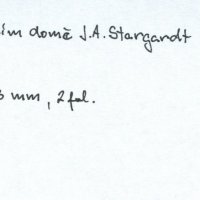 ím domě J.A. Stargardt
mm, 2 fol.